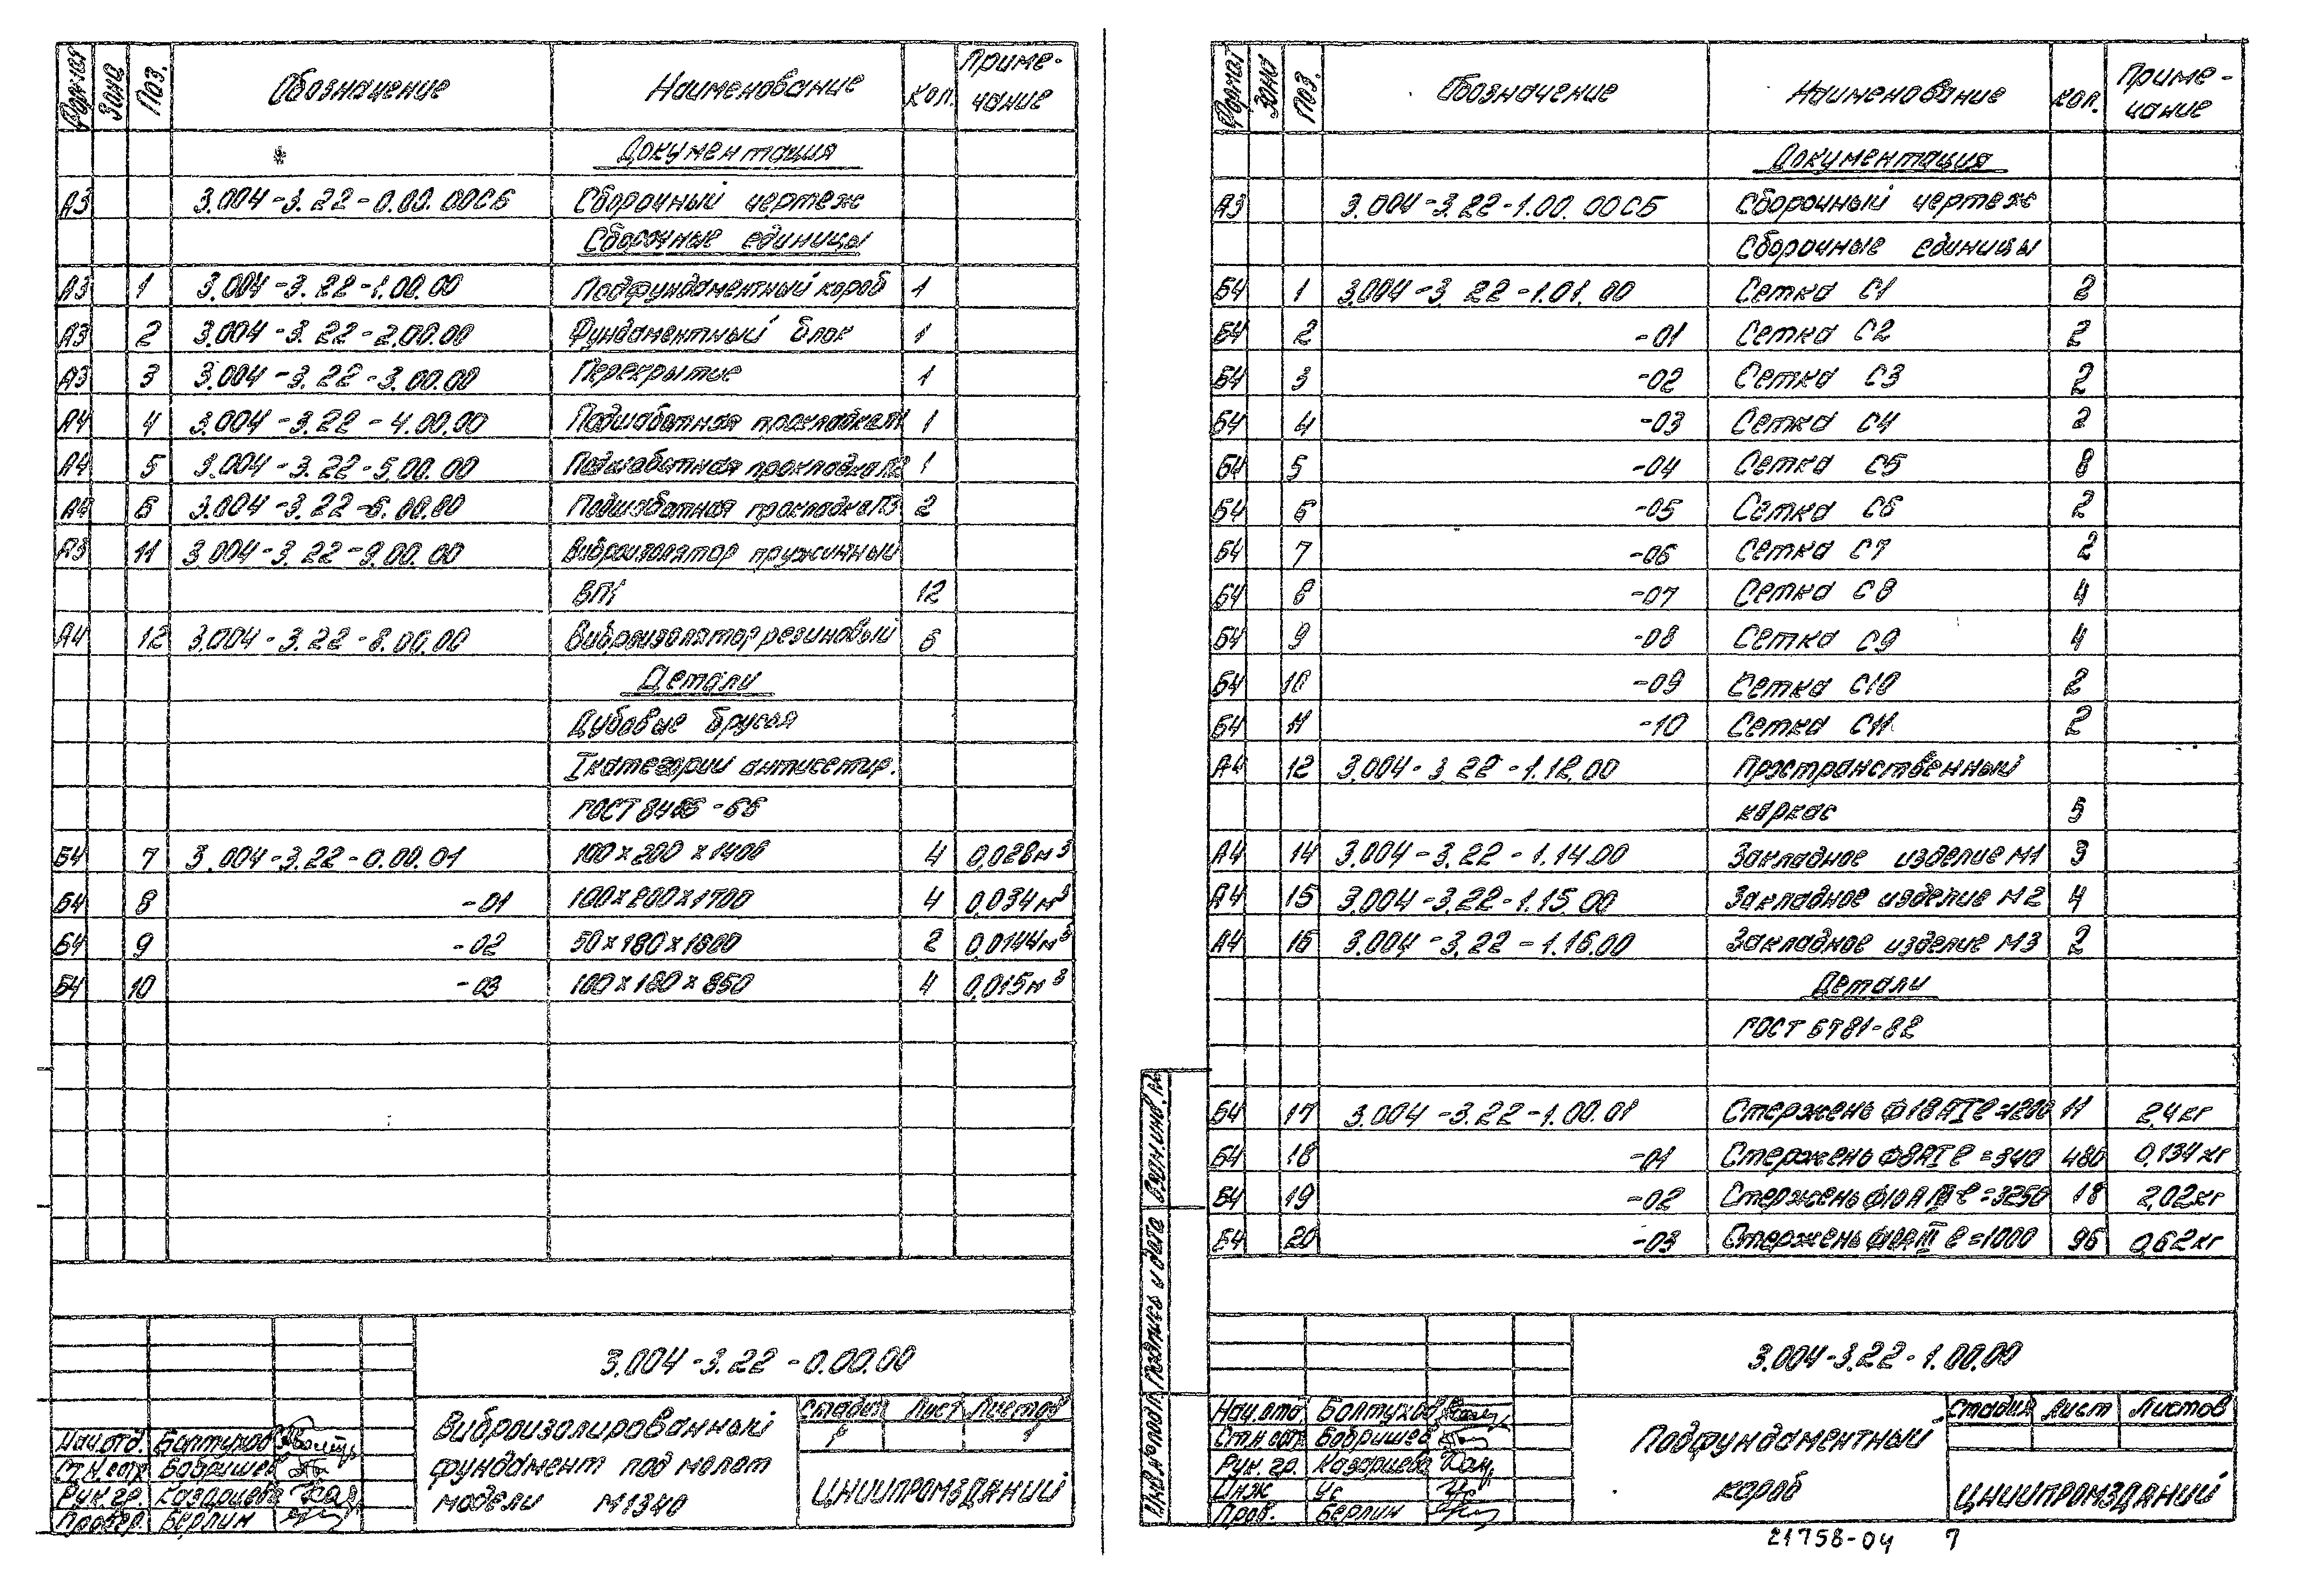 Формат Зона Поз. Обозначение Наименование Кол. Приме-
чание
Документация
А3 3.004-3.22-0.00.00СБ Сборочный чертеж
Сборочные единицы
А3 1 3.004-3.22-1.00.00 Подфундаментный короб 1
А3 2 3.004-3.22-2.00.00 Фундаментный блок 1
А3 3 3.004-3.22-3.00.00 Перекрытие 1
А4 4 3.004-3.22-4.00.00 Подшаботная прокладка П1 1
А4 5 3.004-3.22-5.00.00 Подшаботная прокладка П2 1
А4 6 3.004-3.22-6.00.00 Подшаботная прокладка П3 2
А3 11 3.004-3.22-9.00.00 Виброизолятор пружинный
ВП1 12
А4 12 3.004-3.22-8.00.00 Виброизолятор резиновый 6
Детали
Дубовые брусья
I категории антисептир.
ГОСТ 8486-66
Б4 7 3.004-3.22-0.00.01 100×200×1400 4 0,028м³
Б4 8 -01 100×200×1700 4 0,034м³
Б4 9 -02 50×180×1600 2 0,0144м³
Б4 10 -03 100×180×850 4 0,015м³
3.004-3.22-0.00.00
Виброизолированный
фундамент под молот
модели М1340
Стадия Лист Листов
Р 1
ЦНИИПРОМЗДАНИЙ
Нач.отд. Болтухов
Ст.н.сотр. Бобришев
Рук.гр. Казарцева
Провер. Берлин
Формат Зона Поз. Обозначение Наименование Кол. Приме-
чание
Документация
А3 3.004-3.22-1.00.00СБ Сборочный чертеж
Сборочные единицы
Б4 1 3.004-3.22-1.01.00 Сетка С1 2
Б4 2 -01 Сетка С2 2
Б4 3 -02 Сетка С3 2
Б4 4 -03 Сетка С4 2
Б4 5 -04 Сетка С5 8
Б4 6 -05 Сетка С6 2
Б4 7 -06 Сетка С7 2
Б4 8 -07 Сетка С8 4
Б4 9 -08 Сетка С9 4
Б4 10 -09 Сетка С10 2
Б4 11 -10 Сетка С11 2
А4 12 3.004-3.22-1.12.00 Пространственный
каркас 5
А4 14 3.004-3.22-1.14.00 Закладное изделие М1 3
А4 15 3.004-3.22-1.15.00 Закладное изделие М2 4
А4 16 3.004-3.22-1.16.00 Закладное изделие М3 2
Детали
ГОСТ 5781-82
Б4 17 3.004-3.22-1.00.01 Стержень ф18АI ℓ=1200 11 2,4кг
Б4 18 -01 Стержень ф8АI ℓ=340 480 0,134кг
Б4 19 -02 Стержень ф10АIII ℓ=3250 18 2,02кг
Б4 20 -03 Стержень ф10АIII ℓ=1000 96 0,62кг
Инв.№подл. Подпись и дата Взам.инв.№
3.004-3.22-1.00.00
Подфундаментный
короб
Стадия Лист Листов
ЦНИИПРОМЗДАНИЙ
Нач.отд. Болтухов
Ст.н.сотр. Бобришев
Рук.гр. Казарцева
Инж Ус
Пров. Берлин
21758-04 7